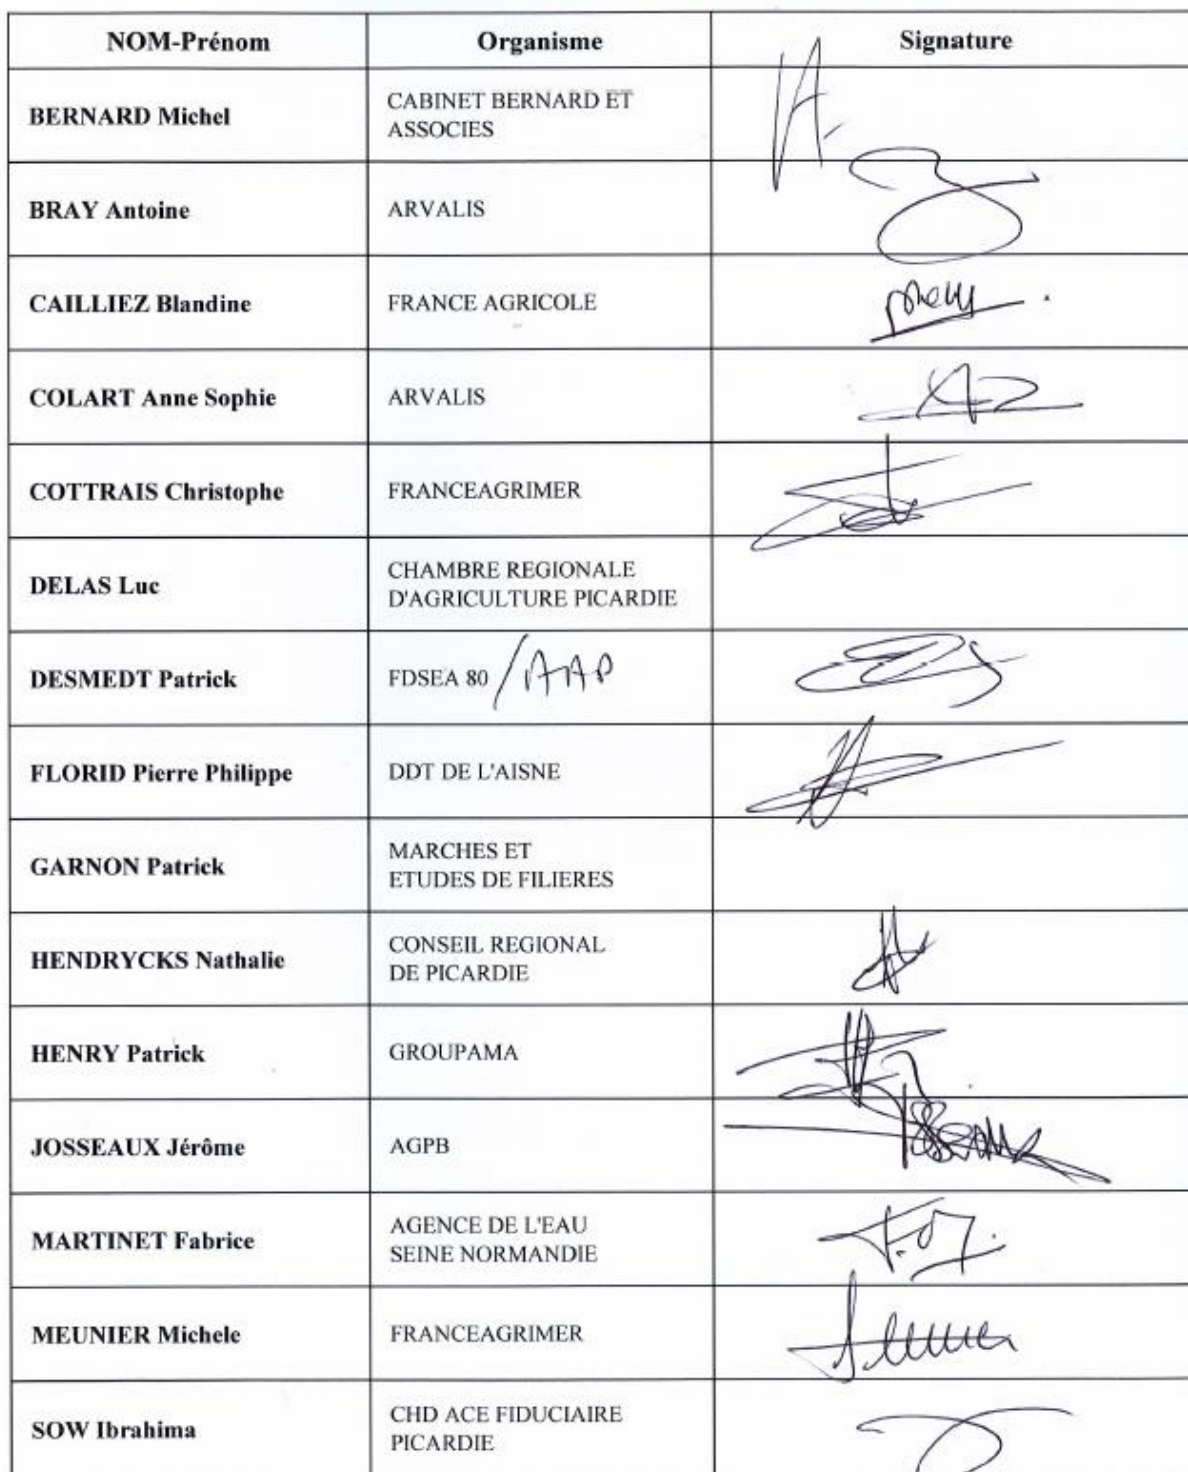 NOM-Prénom Organisme Signature
BERNARD Michel
CABINET BERNARD ET
ASSOCIES
BRAY Antoine
ARVALIS
CAILLIEZ Blandine
FRANCE AGRICOLE
COLART Anne Sophie
ARVALIS
COTTRAIS Christophe
FRANCEAGRIMER
DELAS Luc
CHAMBRE REGIONALE
D'AGRICULTURE PICARDIE
DESMEDT Patrick
FDSEA 80 /AAP
FLORID Pierre Philippe
DDT DE L'AISNE
GARNON Patrick
MARCHES ET
ETUDES DE FILIERES
HENDRYCKS Nathalie
CONSEIL REGIONAL
DE PICARDIE
HENRY Patrick
GROUPAMA
JOSSEAUX Jérôme
AGPB
MARTINET Fabrice
AGENCE DE L'EAU
SEINE NORMANDIE
MEUNIER Michele
FRANCEAGRIMER
SOW Ibrahima
CHD ACE FIDUCIAIRE
PICARDIE